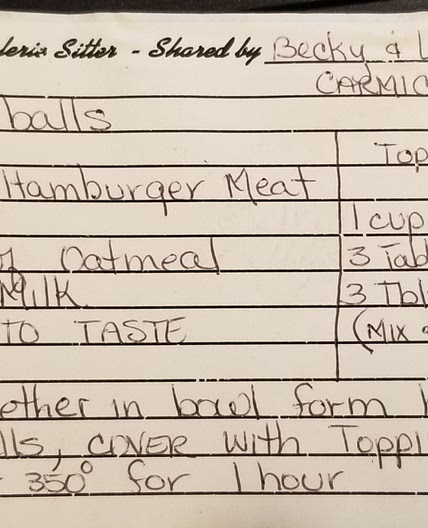 lerie Sitter - Shared by Becky & L
CARMIC
balls
Top
Hamburger Meat
1 cup
of Oatmeal
3 Tab
Milk
3 Tbl
TO TASTE
(Mix
ether in bowl form
lls, COVER with Toppi
350° for 1 hour